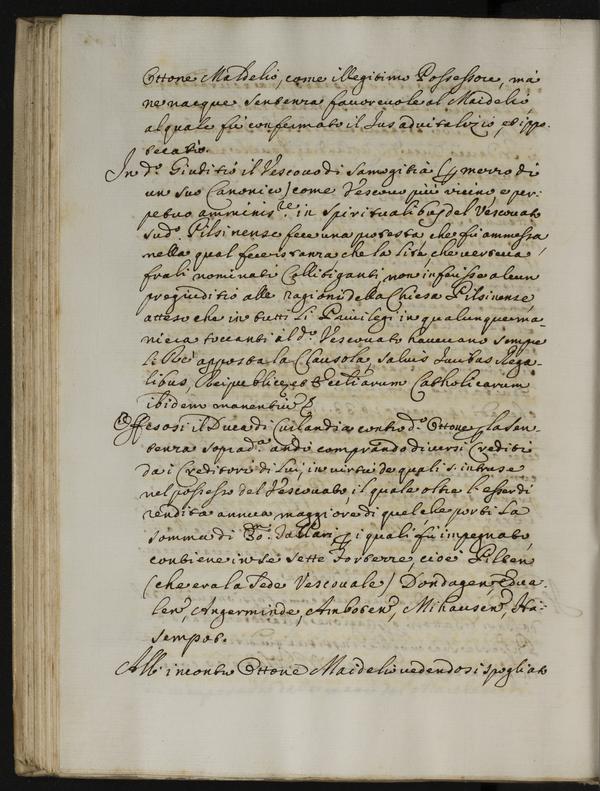 Ottone Maidelio, come illegitimo Possessore, mà
ne nacque sentenza fauoreuole al Maidelio,
al quale fù confermato il Jus aduitalizio, et ippo-
tecario.
In d.º Giuditio il Vescouo di Samogitia (p mezzo di
un suo Canonico) come Vescouo più vicino, e per-
petuo amminis.re in spiritualibus del Vescouato
sud.º Pilsinense fece una protesta, che fù ammessa,
nella qual fece istanza che la lite, che verteua
frà li nominati Collitiganti, non inferisse alcun
pregiuditio alle ragioni della Chiesa Pilsinense
atteso che in tutti li Priuilegi in qualunque ma-
niera toccanti al d.º Vescouato haueuano sempre
li Rè apposta la Clausola, saluis Iuribus Rega-
libus, Reipublice, et Ecclesiarum Catholicarum
ibidem manentium
Offesosi il Duca di Curlandia contro d.º Ottone p la sen-
tenza soprad.ª andò comprando diuersi Crediti
da i Creditori di lui, in virtù de quali s'intruse
nel possesso del Vescouato, il quale oltre l'esser di
rendita annua maggiore di quel che porti la
somma di Tallari, p i quali fù impegnato,
contiene in se sette Fortezze, cioè Pilten
(che era la Sede Vescouale) Dondagen, Edua-
len, Angerminde, Amboten, Nihausen, Ha-
senpot.
All'incontro Ottone Maidelio vedendosi spogliato